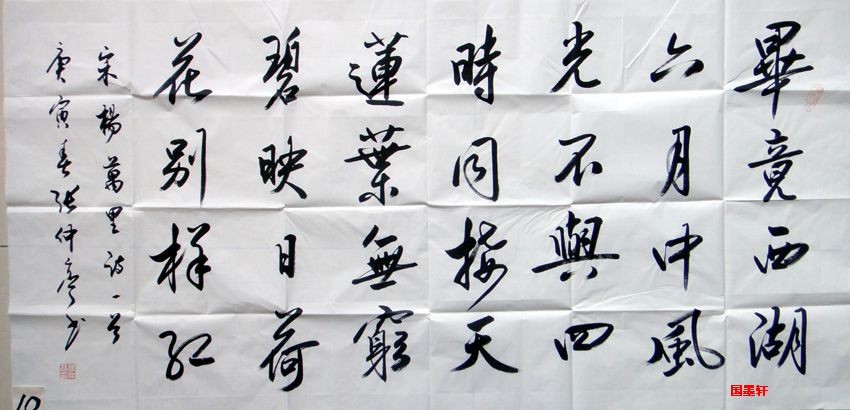 畢竟西湖
六月中風
光不與四
時同接天
蓮葉無窮
碧映日荷
花别样红
宋楊萬里诗一首
庚寅春张仲亭书
国墨轩
10